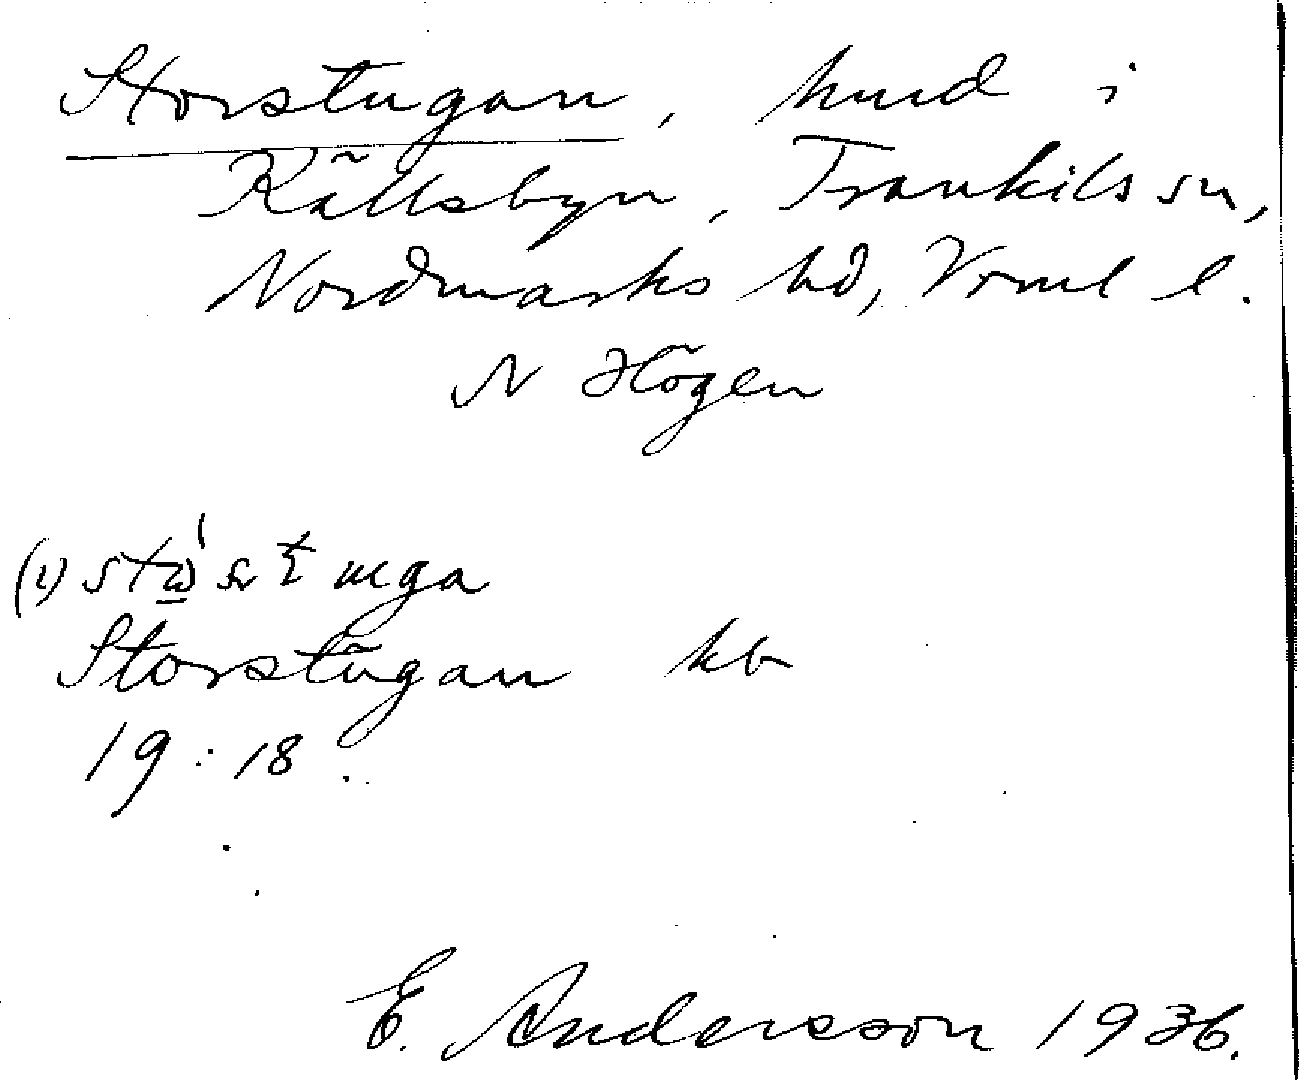 Storstugan, hmd i
Källsbyn, Trankils sn,
Nordmarks hd, Vrml l.
N Högen
(i)
Storstugan kb
19:18.
E. Andersson 1936.